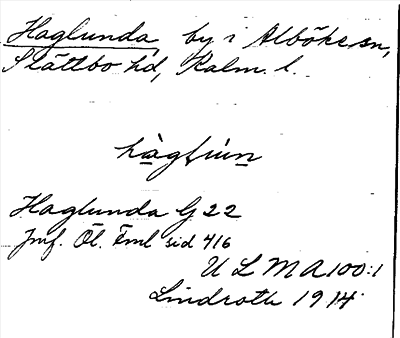 Haglunda by i Alböke sn,
Slättbo hd, Kalm. l.
Haglunda G 22
Jmf. Öl. Eml sid 416
U L M A 100:1
Lindroth 1914